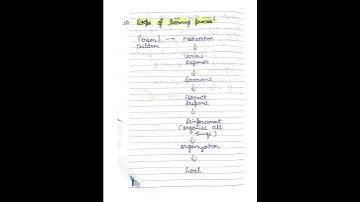 Steps of learning process
Person / → Motivation
Children
Various
Responses
Barriers
Correct
Response
Reinforcement
(organise all
things)
organization
Goal